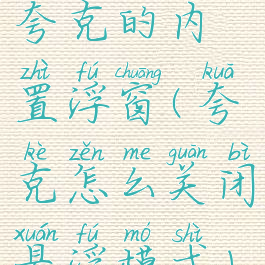 夸克的内
zhì fú chuāng kuā
置浮窗(夸
kè zěn me guān bì
克怎么关闭
xuán fú mó shì
悬浮模式)